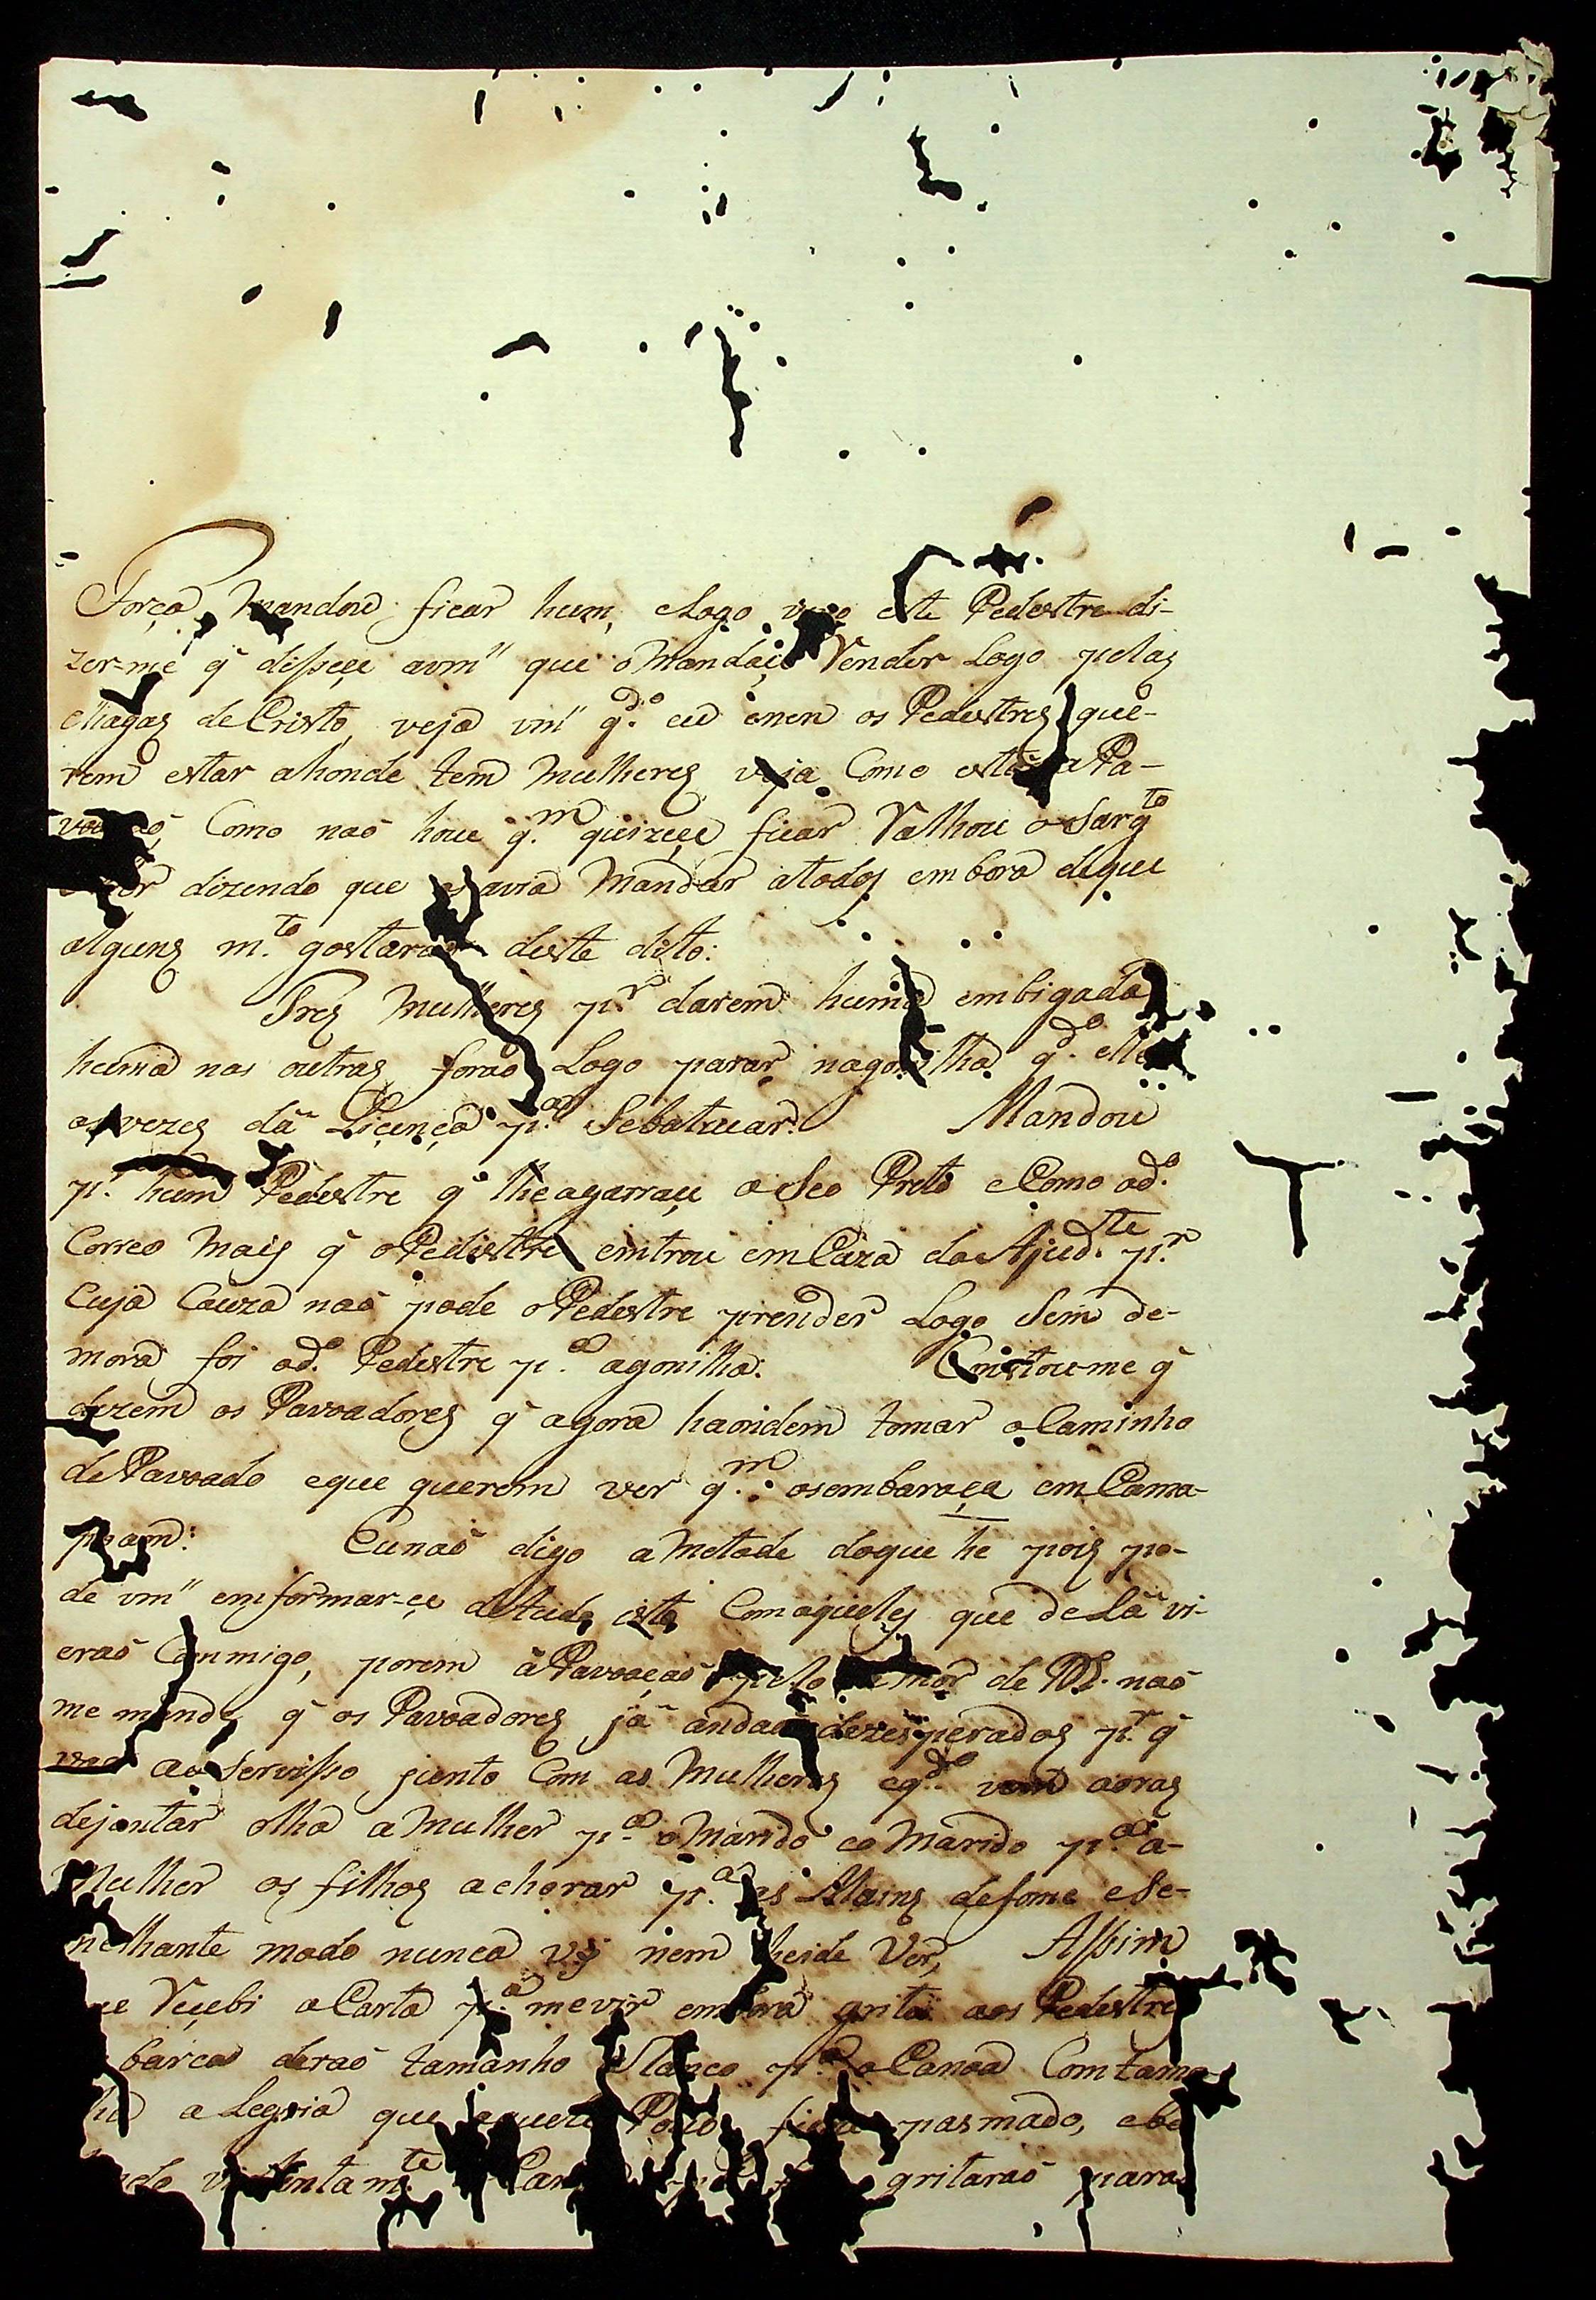 Força, mandou ficar hum, eLogo veio este Pedestre di-
zer-me q̃ dissece avm.ce que omandace Render Logo pelas
chagas deCristo, veja vm.ce q.do eu enen os Pedestres que-
rem estar ahonde tem mulheres veja Como estará aPa-
voação, Como naõ houe q.m quizece ficar Ralhou o Sarg.to
dizendo que os avia Mandar atodos embora deque
alguns m.to gostaraõ deste dito:
Tres mulheres p.r darem huma embigada
huma nas outras foraõ Logo parar nagonilha q.do elle
as vezes dá Liçença p.a Sebatucar. Mandou
p.r hum Pedestre q̃ lheagarraçe o Seo Preto eComo od.o
Correo Mais q̃ oPedestre emtrou emCaza do Ajud.te p.r
Cuja Cauza naõ pode oPedestre prender Logo Sem de-
mora foi od.o Pedestre p.a agonilha. Constou-me q̃
dizem os Pavoadores q̃ agora haoidem tomar oCaminho
dePavoado eque querem ver q.m osembaraça em Cama-
poam: Eunaõ digo ametade doque he pois po-
de vm.ce emformar-çe detudo isto Comaqueles que deLá vi-
eraõ Commigo, porem áPavoaçaõ pelo amor de D.s naõ
me mande q̃ os Pavoadores já andaõ dezesperados p.r q̃
vaõ ao Servisso junto Com as Mulheres eq.do vem aoras
dejantar olha a Mulher p.a oMarido eo Marido p.a a-
Mulher os filhos achorar p.a as Mains defome eSe-
melhante modo nunca vÿ nem heide Ver, Assim
que Reçebi aCarta p.a mevir embora grito aos Pedestres
barca deraõ tamanho Slanco p.a aCanoa Comtama-
nha aLegria que aquele Povo ficou pasmado, ebo
tando violentam.te gritaraõ para